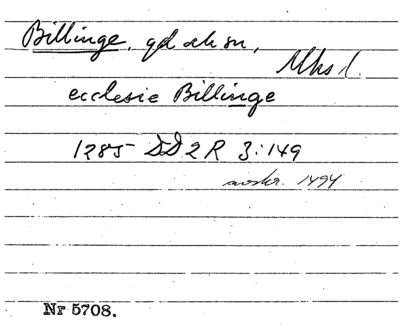 Billinge, gd o sn,
Uks l.
ecclesie Billinge
1285 DD 2 R 3:149
avskr. 1494
Nr 5708.